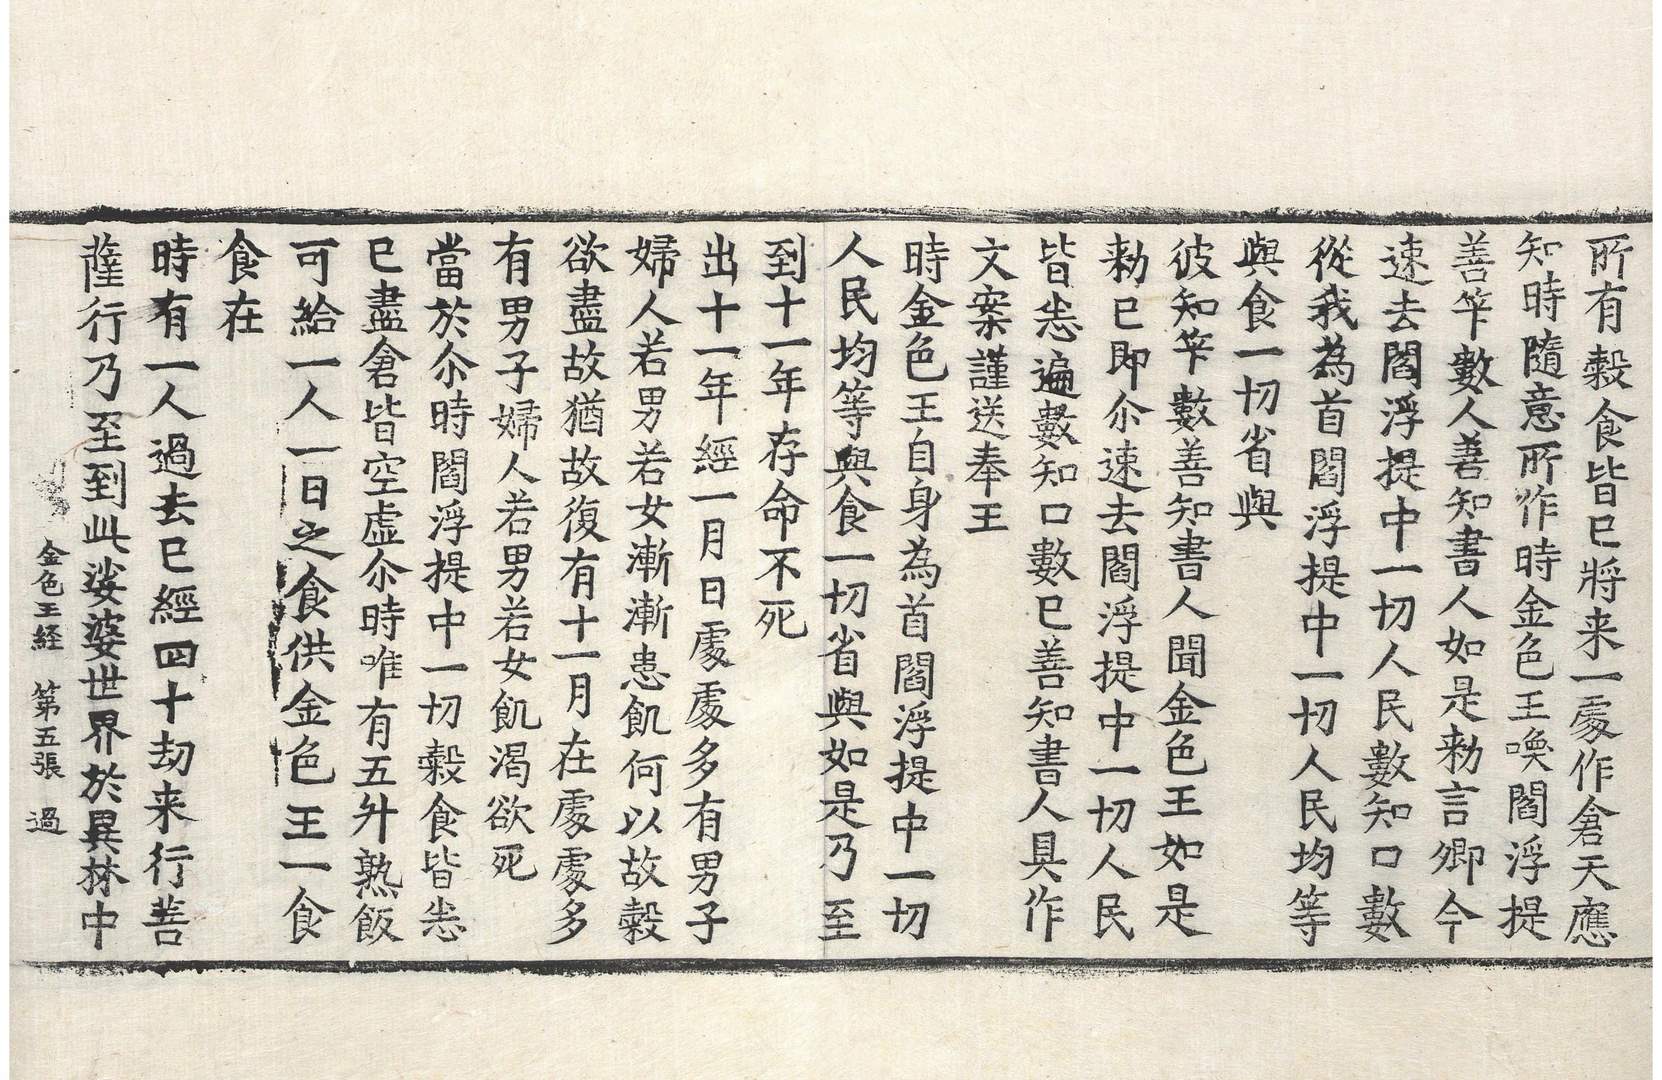 所有穀食皆已將来一處作倉天應
知時隨意所作時金色王喚閻浮提
善筭數人善知書人如是勑言卿今
速去閻浮提中一切人民數知口數
從我為首閻浮提中一切人民均等
與食一切省與
彼知筭數善知書人聞金色王如是
勑已即尒速去閻浮提中一切人民
皆悉遍數知口數已善知書人具作
文案謹送奉王
時金色王自身為首閻浮提中一切
人民均等與食一切省與如是乃至
到十一年存命不死
出十一年經一月日處處多有男子
婦人若男若女漸漸患飢何以故穀
欲盡故猶故復有十一月在處處多
有男子婦人若男若女飢渴欲死
當於尒時閻浮提中一切穀食皆悉
已盡倉皆空虛尒時唯有五升熟飯
可給一人一日之食供金色王一食
食在
時有一人過去已經四十劫来行菩
薩行乃至到此娑婆世界於異林中
金色王経 第五張 過